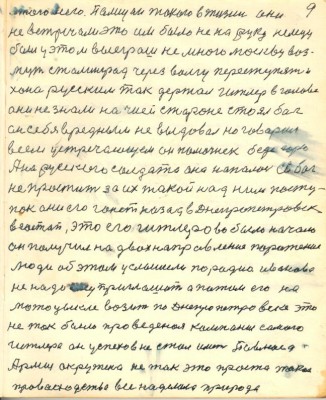 9
этого всего. Помиман такого в жизни они
не встречам это им было не на руку немцу
был у этом выеграш не много москву воз-
мут сталинград через волгу переступять и
хона русским так держал гитлер в голове
они не знали на чией стороне стоял бог
он себя вредным не выдовал но говорил
всем устречающем он поможек беде
Ана русского солдата она напалои бог
не простит за их такой над ним посту-
пок они его гонет назад в Днепропетровск
всотай, это его гитлерово было начало
он получил на двох напровления поротение
люди об этом услышели по радио
не надо приглашот а потим его на
мотоцыкле возит по Днепропетровска это
не так было проведеноя компания самого
гитлера он успехов не стал имет
Армия окружина не так это просто такое
провосходство все наделала природа